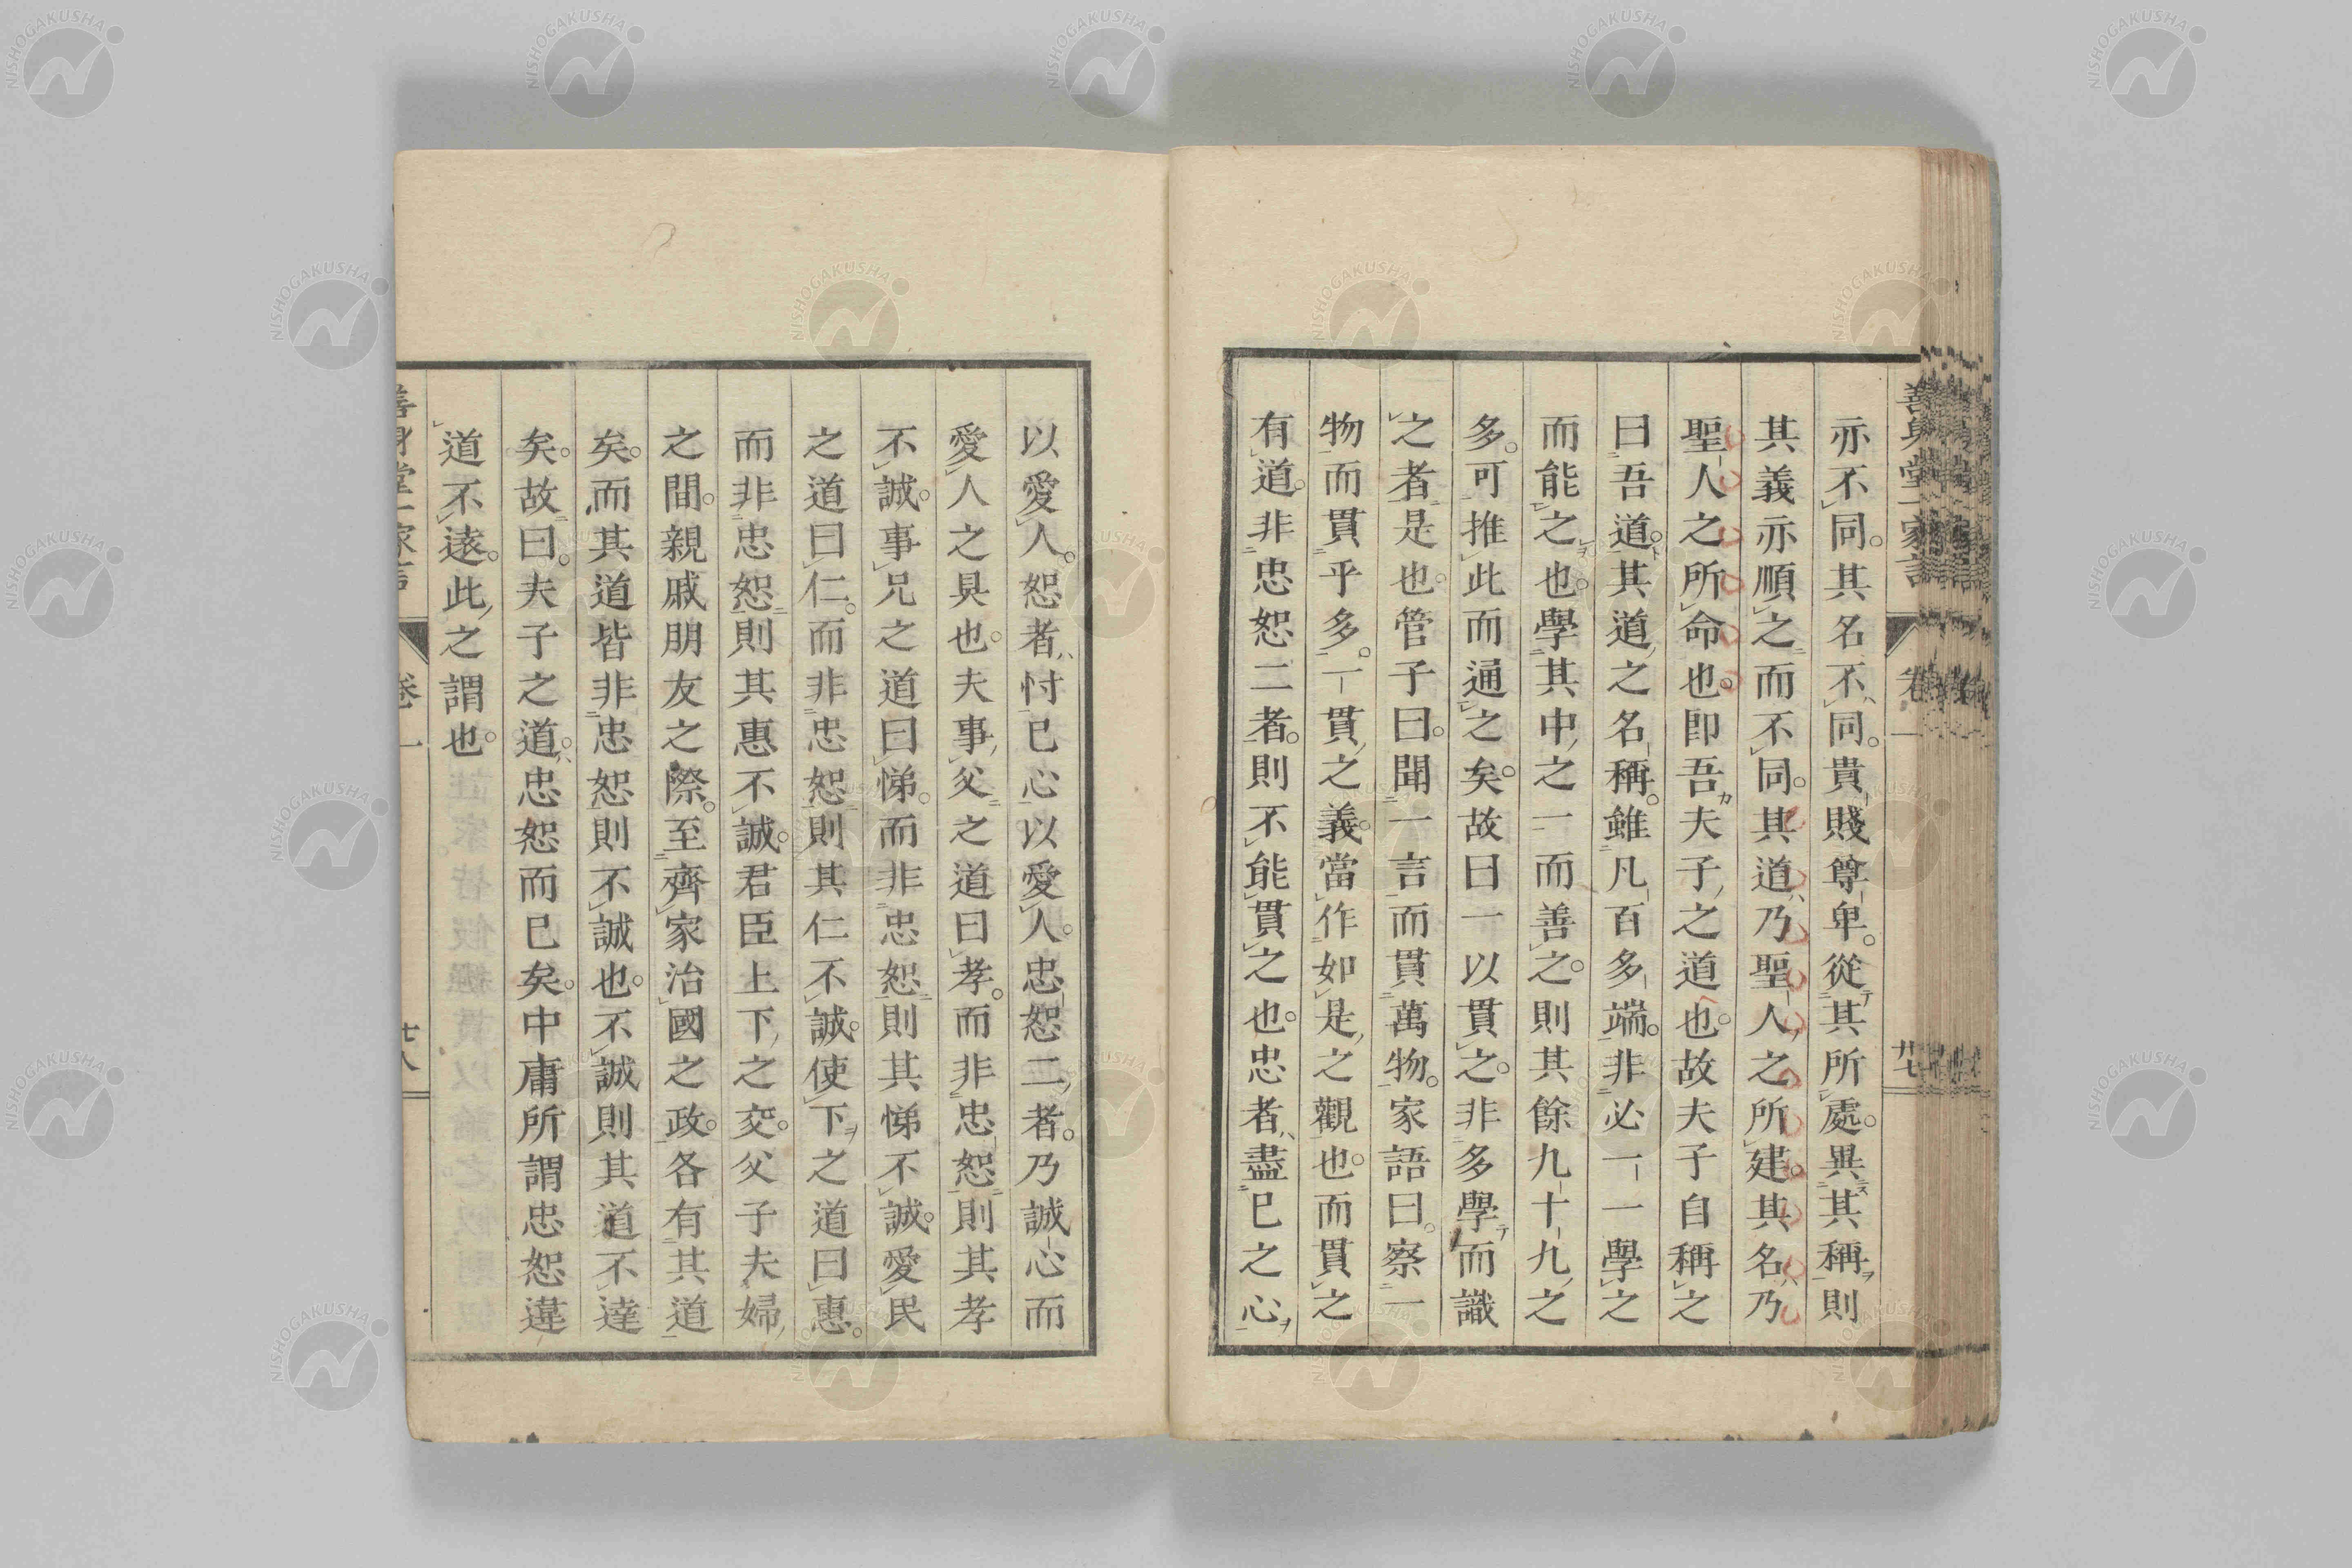 亦不同。其名不同。貴賤尊卑。從其所處。異其稱則
其義亦順之而不同。其道乃聖人之所建。其名乃
聖人之所命也。卽吾夫子之道也。故夫子自稱之
曰吾道。其道之名稱。雖凡百多端。非必一一學之
而能之也。學其中之一而善之。則其餘九十九之
多。可推此而通之矣。故曰一以貫之。非多學而識
之者是也。管子曰。聞一言而貫萬物。家語曰。察一
物而貫乎多。一貫之義。當作如是之觀也。而貫之
有道。非忠恕二者。則不能貫之也。忠者盡己之心
以愛人。恕者忖己心以愛人。忠恕二者。乃誠心而
愛人之具也。夫事父之道曰孝。而非忠恕則其孝
不誠。事兄之道曰悌。而非忠恕則其悌不誠。愛民
之道曰仁。而非忠恕則其仁不誠。使下之道曰惠。
而非忠恕則其惠不誠。君臣上下之交。父子夫婦
之間。親戚朋友之際。至齊家治國之政。各有其道
矣。而其道皆非忠恕則不誠也。不誠則其道不達
矣。故曰。夫子之道。忠恕而已矣。中庸所謂忠恕違
道不遠。此之謂也。
卷一
NISHOGAKUSHA